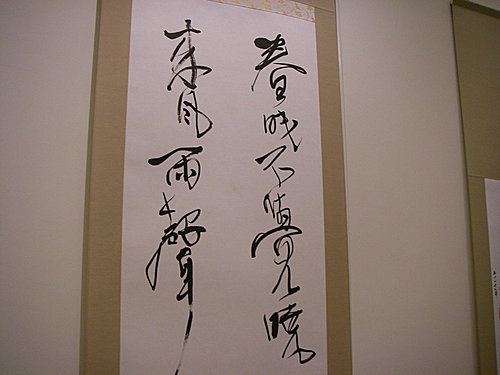 春眠不覺曉
来風雨聲